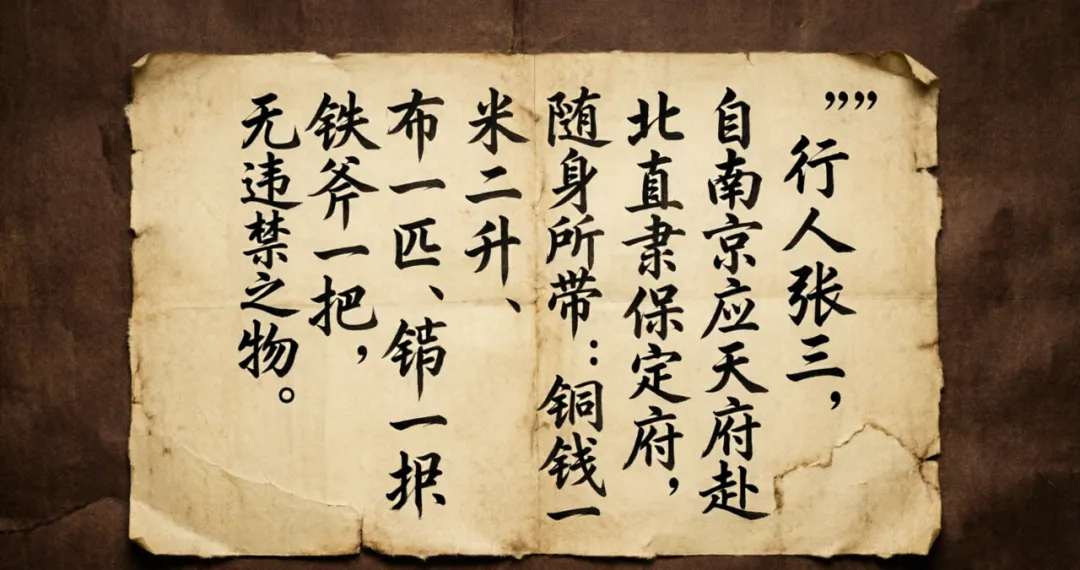 ””
行人张三，
自南京应天府赴
北直隶保定府，
随身所带：铜钱一
米二升、
布一匹、一
铁斧一把，
无违禁之物。